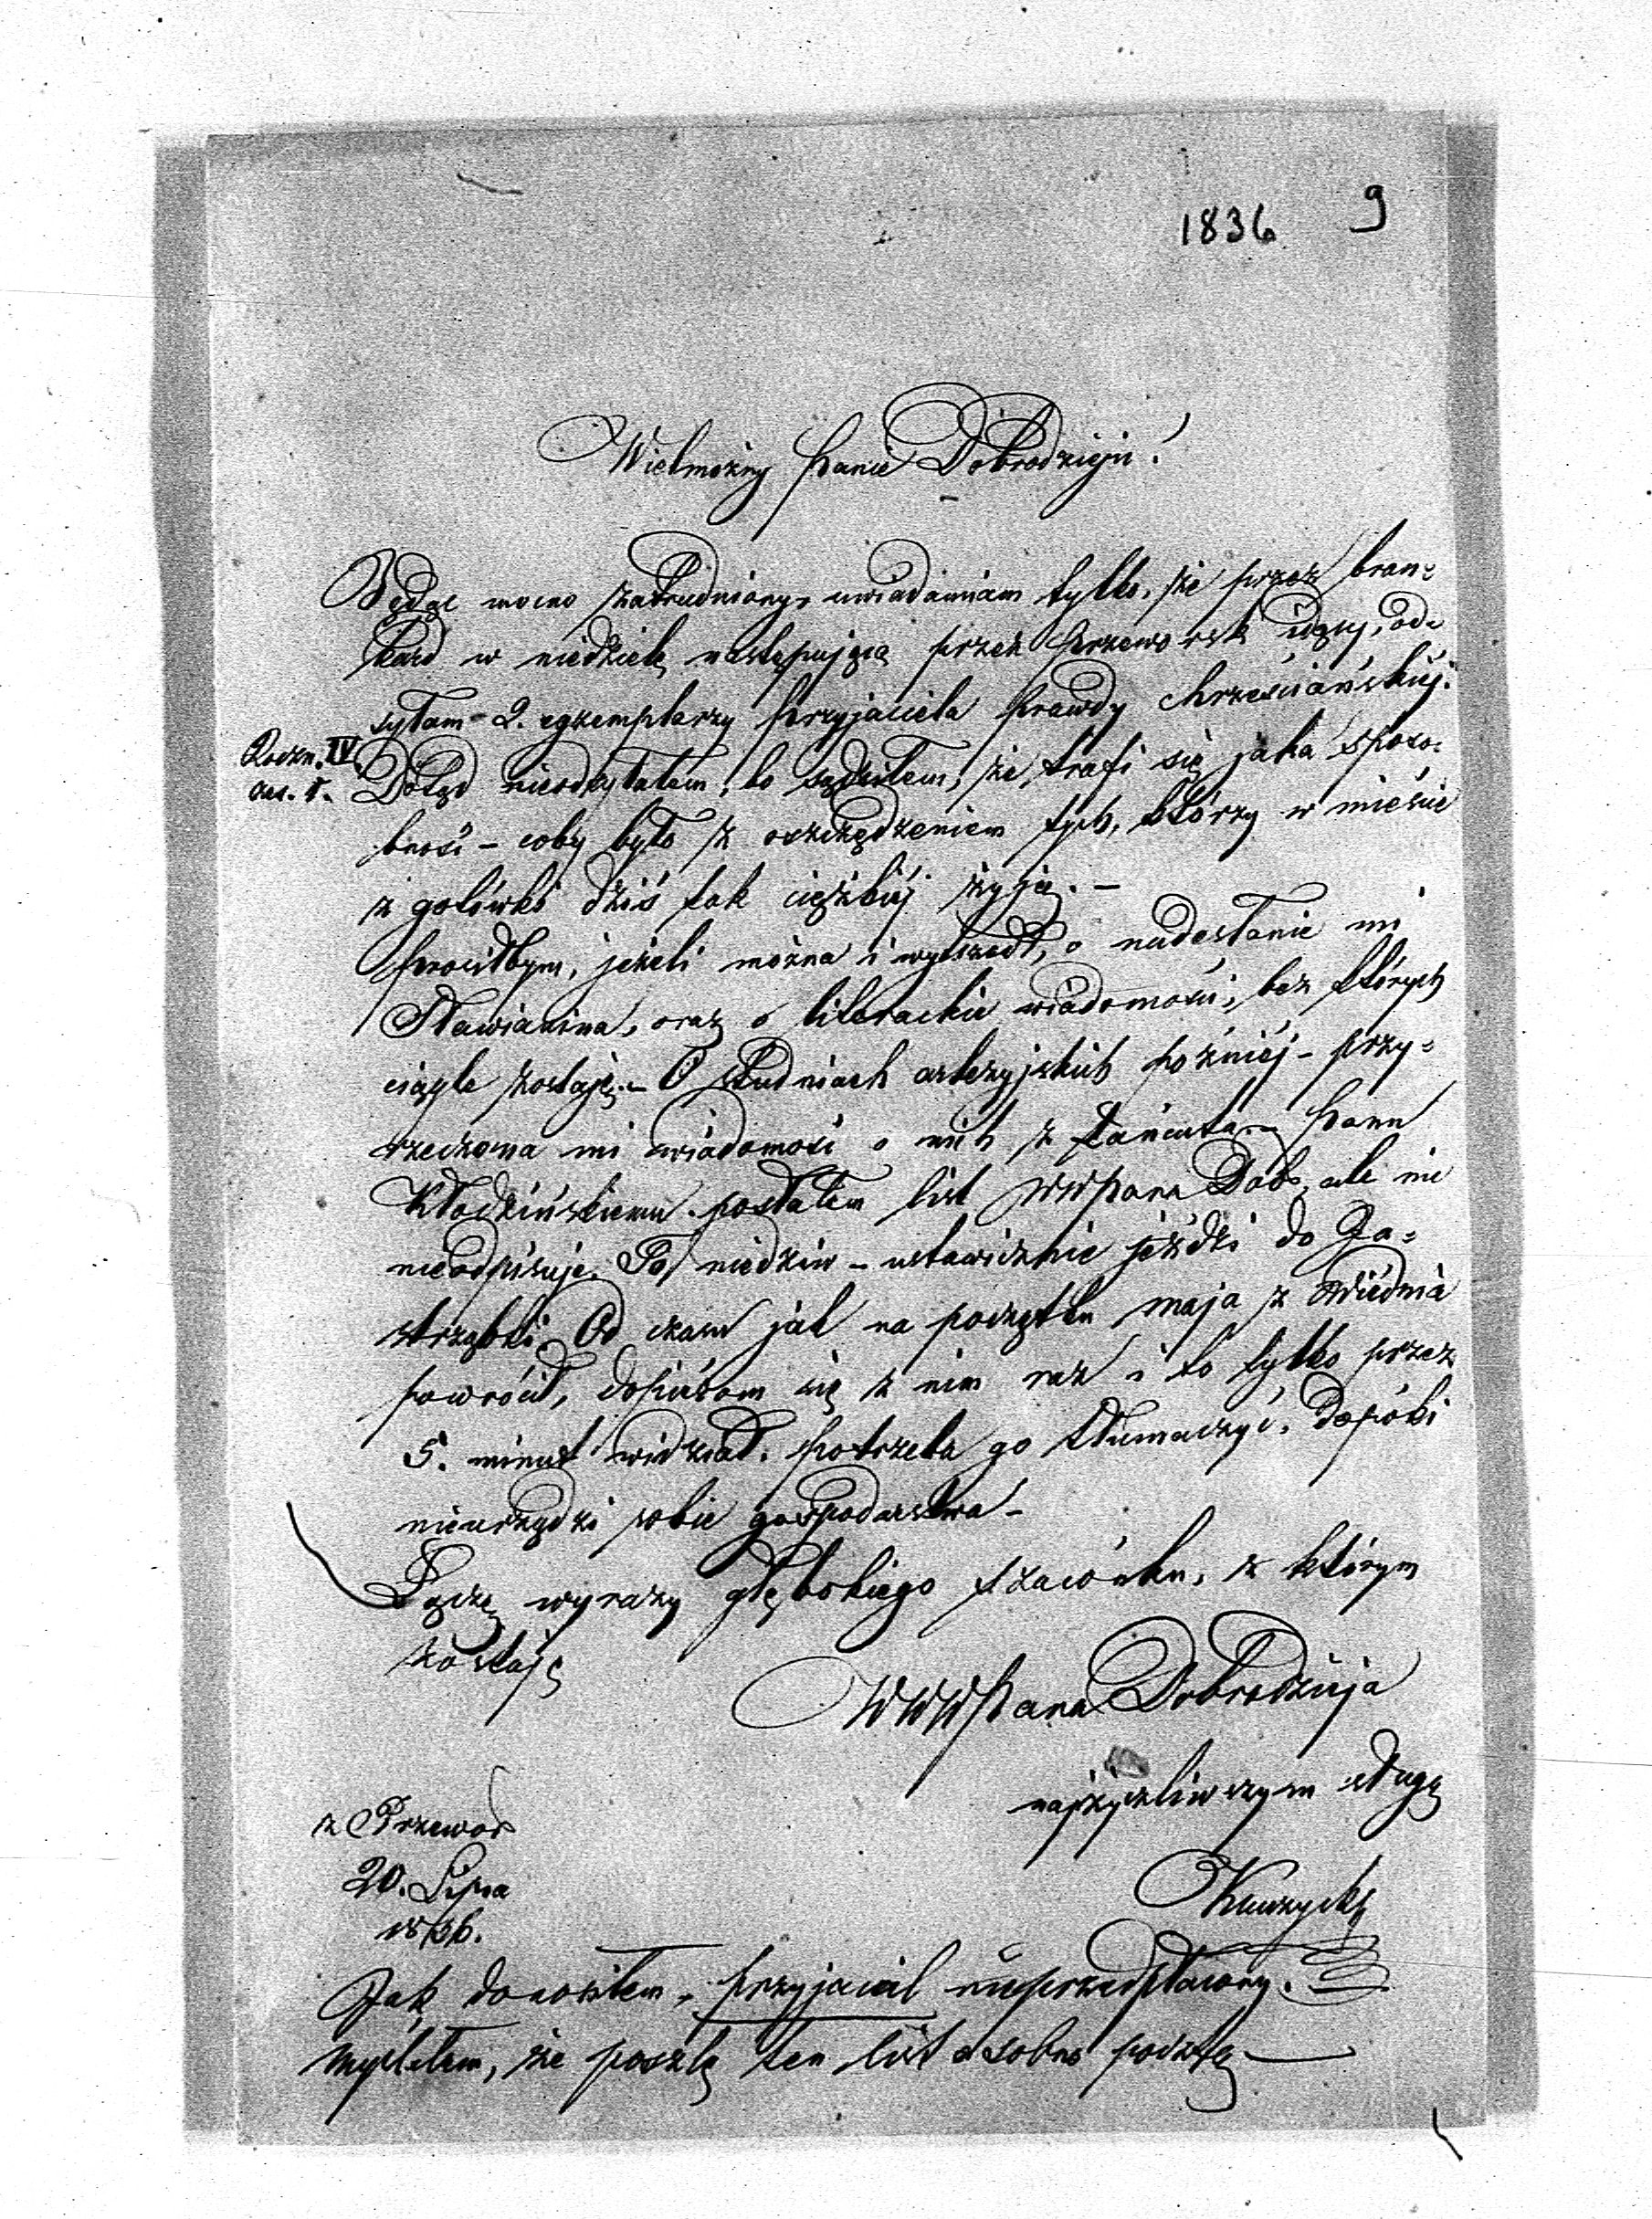 1836 9
Wielmożny Panie Dobrodzieju!
Będąc mocno zatrudniony, uwiadamiam tylko, że przez bran=
kard w niedzielę następującą przez Przeworsk idący, od=
syłam 2. egzemplarzy Przyjaciela Prawdy chrześciańskiéj.
Roczn. IV.
zes. 1.
Dotąd nieodsyłałem, bo sądziłem, że trafi się jaka sposo=
bność – coby było z oszczędzeniem tych, którzy w mieście
z gotówki dziś tak ciężkiéj żyją. –
Prosiłbym, jeżeli można i wyszedł, o nadesłanie mi
Sławianina, oraz o literackie wiadomości, bez których
ciągle zostaję. – O studniach artezyjskich poźniéj – przy=
rzeczona mi wiadomość o nich z Łańcuta. – Panu
Kłodzińskiemu posłałem list WWPana Dob., ale nic
nieodpisuje. To niedziw – ustawicznie jeździ do Ja=
strząbki. Od czasu jak na początku maja z Wiednia
powrócił, dopiérom się z nim raz i to tylko przez
5. minut widział. Potrzeba go tłumaczyć, dopóki
nieurządzi sobie gospodarstwa –
Łączę wyrazy głębokiego szacunku, z którym
zostaję
WWWPana Dobrodzieja
najżyczliwszym sługą
z Przewor
20. Lipca
1836.
Jak donosiłem, przyjaciel nieprzedpłacony.
Myślałem, że poszlę ten list osobno pocztą –